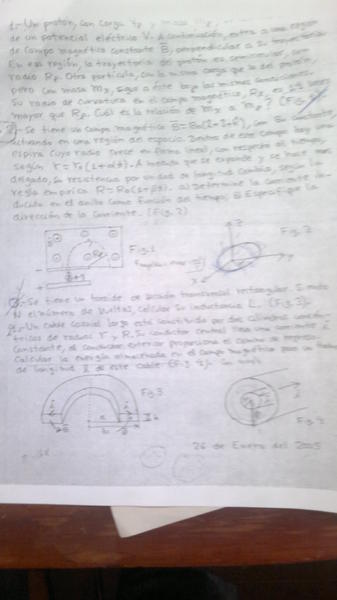 1.- Un protón, con carga y masa
de un potencial eléctrico V. A continuación, entra a una región
de campo magnético constante B, perpendicular a su trayectoria
En esa región, la trayectoria del protón es semicircular, con
radio Rp. Otra partícula, con la misma carga que el protón,
pero con masa mx, sigue a éste bajo las mismas condiciones.
Su radio de curvatura en el campo magnético, Rx, es veces
mayor que Rp. Cuál es la relación de mx a mp? (Fig. 1)
2.- Se tiene un campo magnético B= Bo con Bo constante,
actuando en una región del espacio. Dentro de este campo hay una
espira cuyo radio crece en forma lineal, con respecto al tiempo,
según r=ro(1+αt). A medida que se expande y se hace más
delgado, su resistencia por unidad de longitud cambia, según la
regla empírica R=Ro(1+βt). a) Determine la corriente in-
ducida en el anillo como función del tiempo; b) Especifique la
dirección de la corriente. (Fig. 2)
Fig. 1
Fig. 2
Z
Y
X
3.- Se tiene un toroide de sección transversal rectangular. Siendo
N el número de vueltas, calcular su inductancia L. (Fig. 3).
4.- Un cable coaxial largo está constituido por dos cilindros concén-
tricos de radios r y R. Su conductor central lleva una corriente i
constante, el conductor exterior proporciona el camino de regreso.
Calcular la energía almacenada en el campo magnético para un tramo
de longitud l de este cable (Fig. 4).
Fig. 3
Fig. 4
26 de Enero del 2005